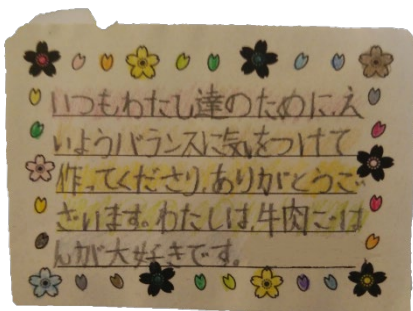 いつもわたし達のために、え
いようバランスに気をつけて
作ってくださり、ありがとうご
ざいます。わたしは、牛肉ごは
んが大好きです。